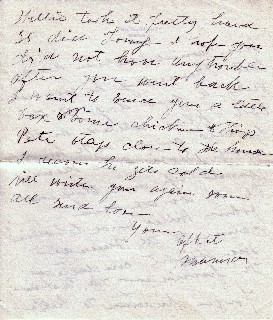 Hattie took it pretty hard
so did Tommy - I hope you
did not have any trouble
after you went back
I want to send you a little
box of some chicken & things
Pete stays close to the house
I reckon he gets cold
will write you again soon
all send love -
Your